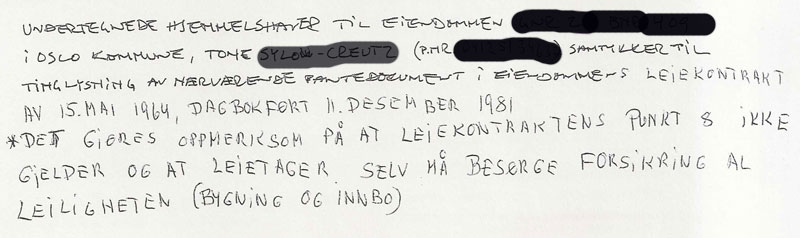 UNDERTEGNEDE HJEMMELSHAVER TIL EIENDOMMEN
I OSLO KOMMUNE, TONE (P.NR ) SAMTYKKER TIL
TINGLYSNING AV NÆRVÆRENDE PANTEDOKUMENT I EIENDOMMENS LEIEKONTRAKT
AV 15. MAI 1964, DAGBOKFØRT 11. DESEMBER 1981
*DET GJØRES OPPMERKSOM PÅ AT LEIEKONTRAKTENS PUNKT 8 IKKE
GJELDER OG AT LEIETAGER SELV MÅ BESØRGE FORSIKRING AL
LEILIGHETEN (BYGNING OG INNBO)